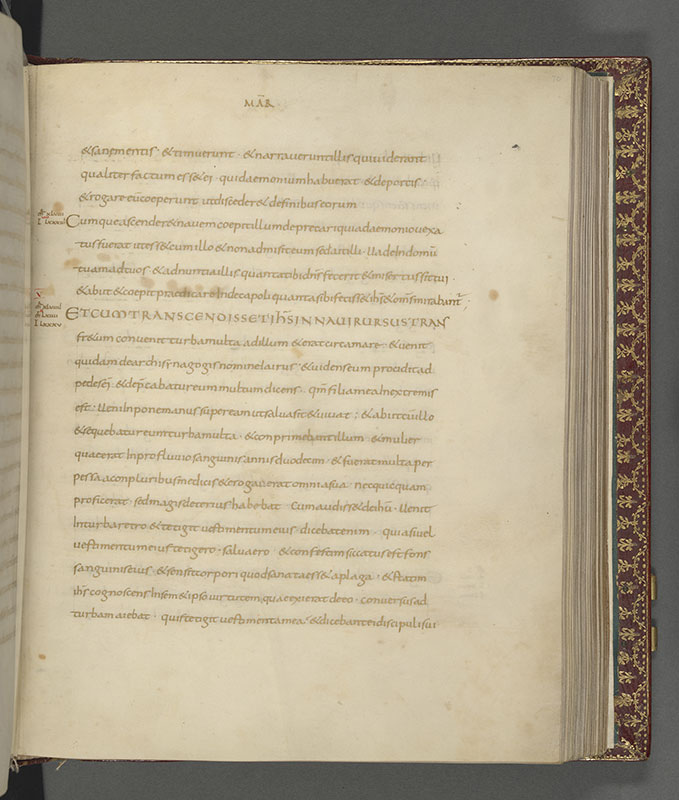 MAR
& sanementis · & timuerunt · & narraverunt illis qui viderant
qualiter factum ess& ei qui daemonium habuerat & de porcis ·
& rogare eū coeperunt ut disceder& de finibus eorum
Cumque ascender& navem coepit illum deprecari qui a daemonio vexa
tus fuerat ut ess& cum illo & non admisit eum sed ait illi · Uade in domū
tuam ad tuos & adnuntia illis quanta tibi dn̄s fecerit & misertus sit tui ·
& abiit & coepit praedicare in decapoli quanta sibi feciss& ih̄s & om̄s mirabant̄
ET CUM TRANSCENDISSET IH̄S IN NAVI RURSUS TRAN
fr&um convenit turba multa ad illum & erat circa mare · & venit
quidam de archisynagogis nomine iairus · & videns eum procidit ad
pedes ei · & dep̄cabatur eum multum dicens · qm̄ filia mea in extremis
est · Ueni inpone manus super eam ut salva sit & vivat · & abiit cū illo
& sequebatur eum turba multa · & conprimebant illum · & mulier
quae erat in profluvio sanguinis annis duodecim · & fuerat multa per
pessa a conpluribus medicis & erogaverat omnia sua · nec quicquam
proficerat · sed magis deterius habebat · Cum audiss& de ih̄u · Uenit
in turba retro & tetigit vestimentum eius · dicebat enim · quia si vel
vestimentum eius tetigero · salva ero · & confestim siccatus est fons
sanguinis eius · & sensit corpori quod sanata ess& a plaga · & statim
ih̄s cognoscens in sem&ipso virtutem quae exierat de eo · conversus ad
turbam aiebat · quis tetigit vestimenta mea · & dicebant ei discipuli sui